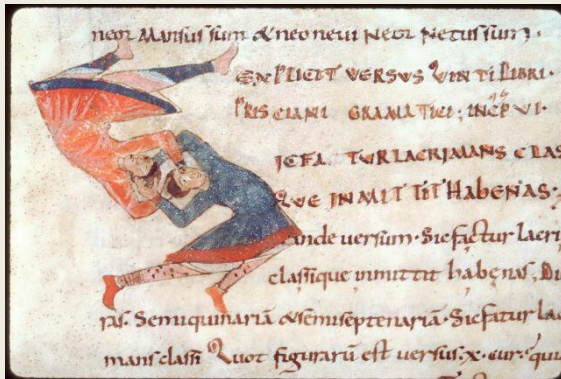 neor Mansus sum & neo neui Neor Netus sum.
EXPLICIT VERSUS QUINTI LIBRI.
PRISCIANI GRAMATICI; INCP VI.
IC FA TUR LACRIMANS CLAS
QUE INMIT TIT HABENAS.
cande uersum. Sic fatur lacri
classique inmittit habenas, Di
ras. Semiquinariā & semiseptenariā. Sic fatur lac
mans classi Quot figurarū est uersus; x. cur; qui